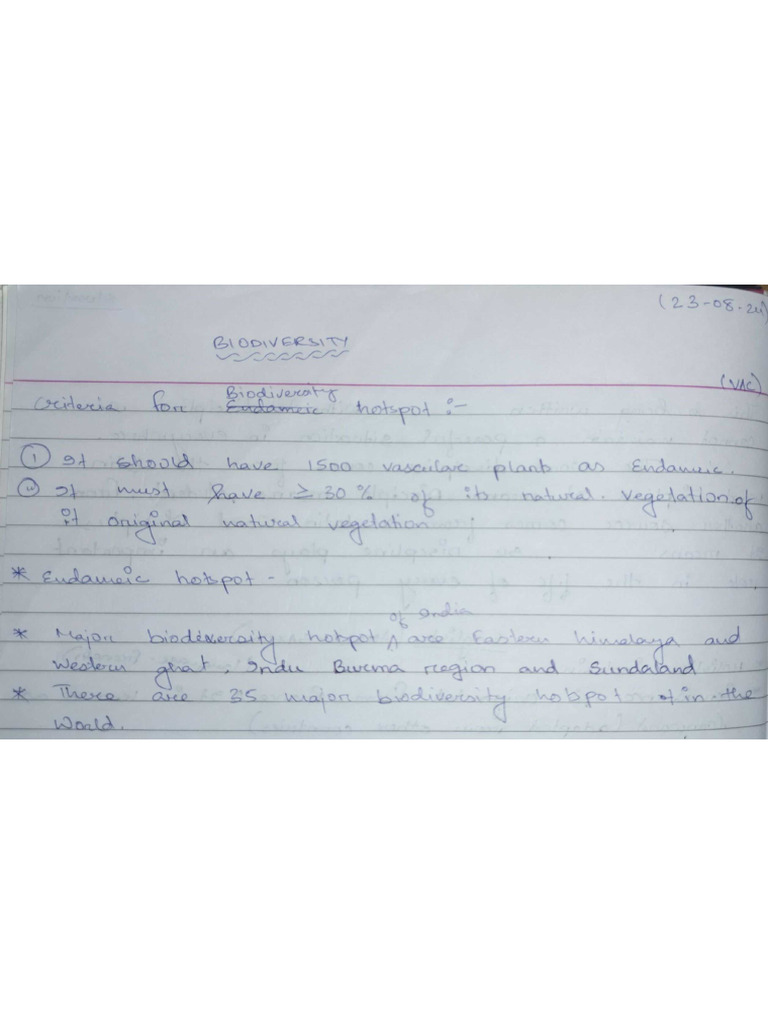 (23-08-24)
BIODIVERSITY
(VAC)
Biodiversty
Criteria for Endameic hotspot :-
① It should have 1500 vascular plant as Endameic.
② It must have ≥ 30% of its natural vegetation of
it original natural vegetation
* Endameic hotspot -
of India
* Major biodiversity hotspot ^ are Eastern himalaya and
Western ghat, Indu Burma region and Sundaland
* There are 35 major biodiversity hobpot of in the
World.